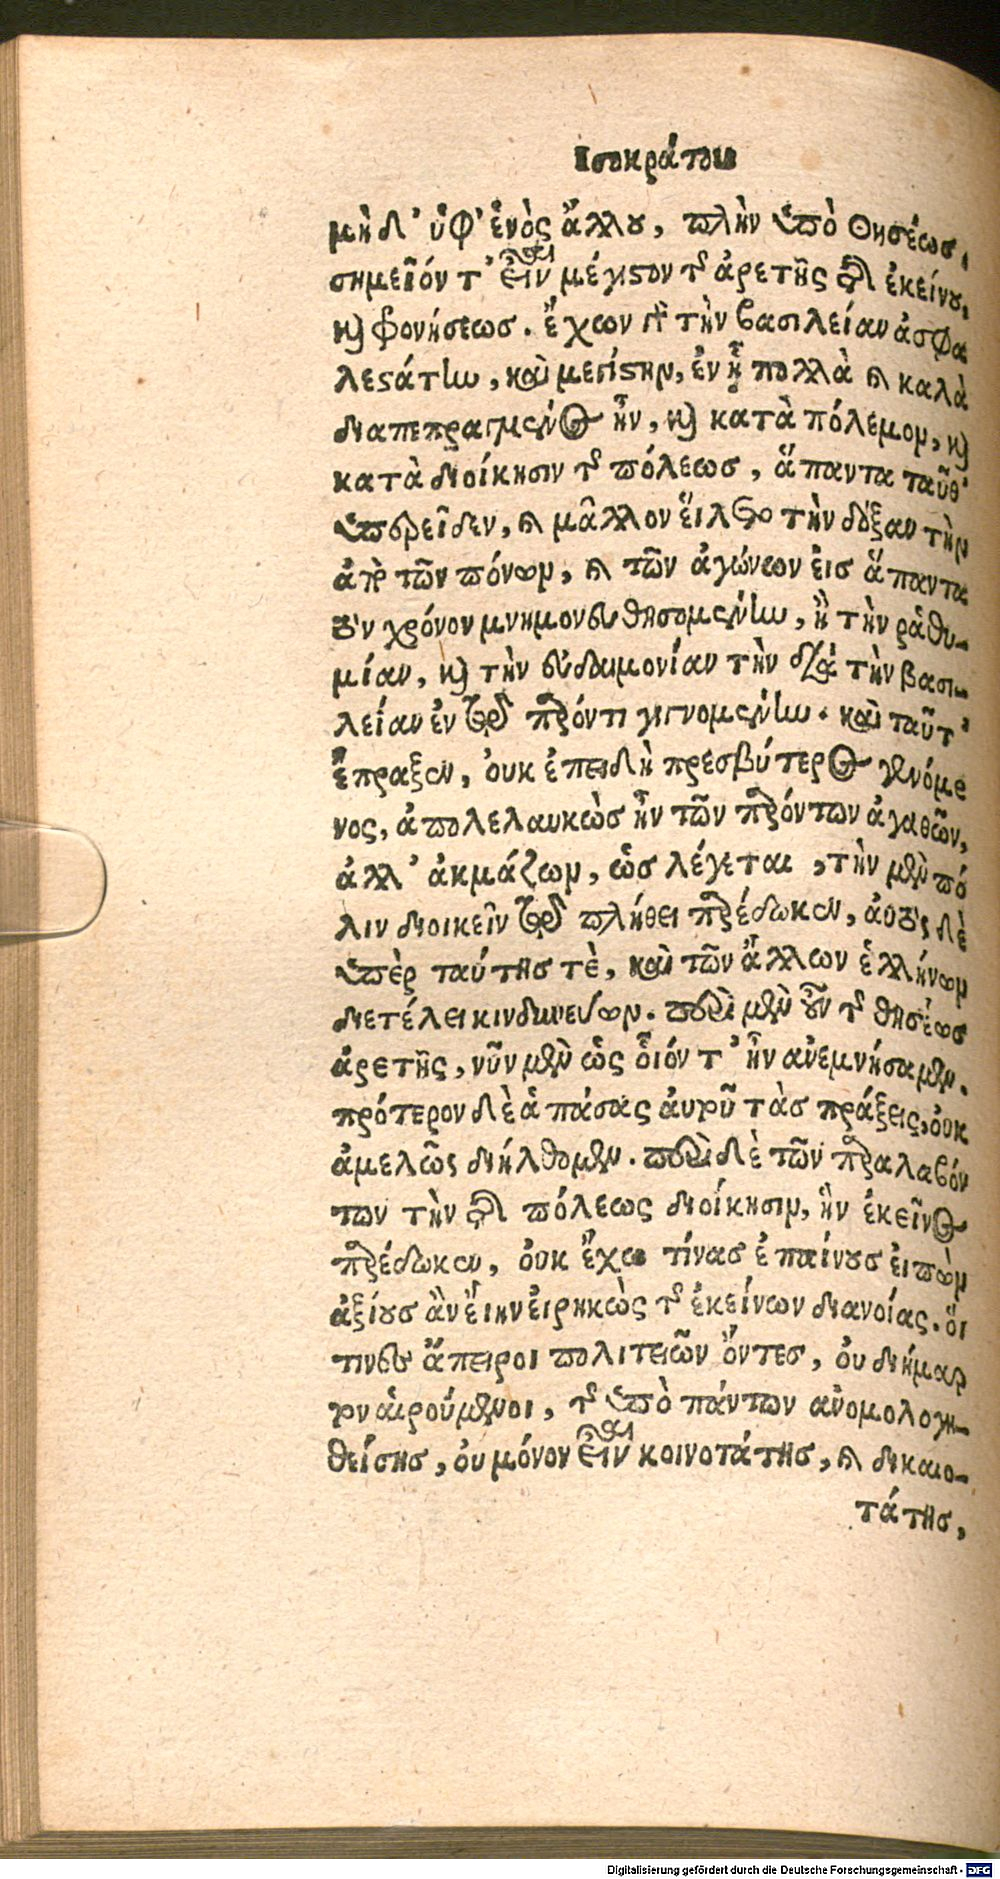 Ισοκράτους
μηδ' ὑφ' ἑνὸς ἄλλου, πλὴν ὑπὸ Θησέως,
σημεῖόν τ' ἐστὶν μέγιστον τῆς ἀρετῆς τῆς ἐκείνου,
καὶ φρονήσεως. ἔχων γὰρ τὴν βασιλείαν ἀσφα
λεστάτην, καὶ μεγίστην, ἐν ᾗ πολλὰ καὶ καλὰ
διαπεπραγμένος ἦν, καὶ κατὰ πόλεμον, καὶ
κατὰ διοίκησιν τῆς πόλεως, ἅπαντα ταῦθ'
ὑπερεῖδεν, καὶ μᾶλλον εἵλετο τὴν δόξαν τὴν
ἀπὸ τῶν πόνων, καὶ τῶν ἀγώνων εἰς ἅπαντα
τὸν χρόνον μνημονευθησομένην, ἢ τὴν ῥᾳθυ-
μίαν, καὶ τὴν εὐδαιμονίαν τὴν διὰ τὴν βασι-
λείαν ἐν τῷ παρόντι γιγνομένην. καὶ ταῦτ'
ἔπραξεν, οὐκ ἐπειδὴ πρεσβύτερος γενόμε
νος, ἀπολελαυκὼς ἦν τῶν παρόντων ἀγαθῶν,
ἀλλ' ἀκμάζων, ὡς λέγεται, τὴν μὲν πό
λιν διοικεῖν τῷ πλήθει παρέδωκεν, αὐτὸς δὲ
ὑπὲρ ταύτης τὲ, καὶ τῶν ἄλλων ἑλλήνων
διετέλει κινδυνεύων. περὶ μὲν οὖν τῆς θησέως
ἀρετῆς, νῦν μὲν ὡς οἷόν τ' ἦν ἀνεμνήσαμεν.
πρότερον δὲ ἁπάσας αὐτοῦ τὰς πράξεις, οὐκ
ἀμελῶς διήλθομεν. περὶ δὲ τῶν παραλαβόν
των τὴν τῆς πόλεως διοίκησιν, ἣν ἐκεῖνος
παρέδωκεν, οὐκ ἔχω τίνας ἐπαίνους εἰπὼν
ἀξίους ἂν εἴην εἰρηκὼς τῆς ἐκείνων διανοίας. οἵ
τινες ἄπειροι πολιτειῶν ὄντες, οὐ διήμαρ
τον αἱρούμενοι, τῆς ὑπὸ πάντων ἀνομολογη-
θείσης, οὐ μόνον εἶναι κοινοτάτης, καὶ δικαιο-
τάτης,
Digitalisierung gefördert durch die Deutsche Forschungsgemeinschaft - DFG